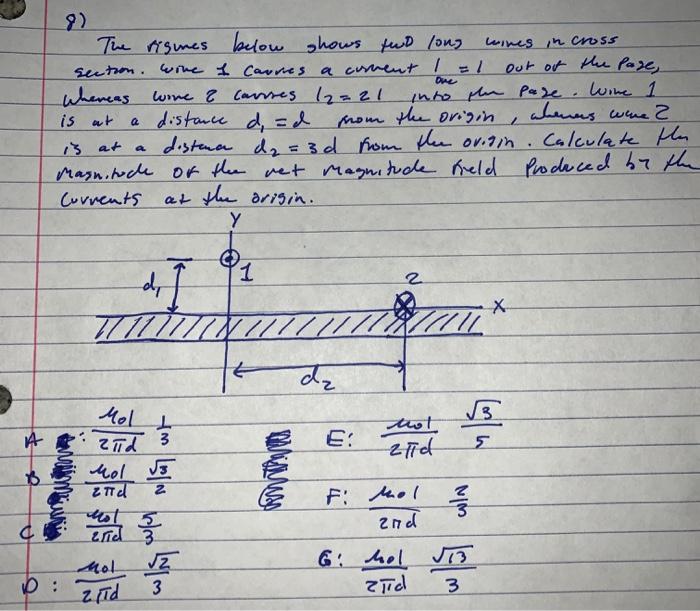 8)
The figures below shows two long wires in cross
section. Wire 1 carries a current I = I out of the page,
one
whereas wire 2 carries I2 = 2I into the page. Wire 1
is at a distance d1 = d from the origin, whereas wire 2
is at a distance d2 = 3d from the origin. Calculate the
magnitude of the net magnitude field produced by the
currents at the origin.
Y
1
d1
2
X
d2
A : μoI/2πd 1/3
B : μoI/2πd √3/2
C : μoI/2πd 5/3
D : μoI/2πd √2/3
E: μoI/2πd √3/5
F: μoI/2πd 2/3
G: μoI/2πd √13/3